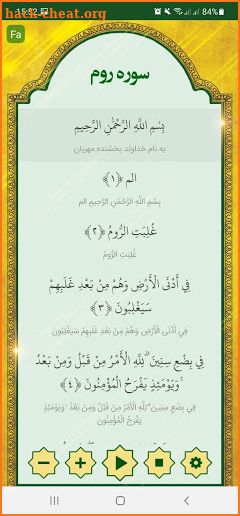 hack-cheat.org
15:52
84%
Fa
سوره روم
بِسْمِ اللَّهِ الرَّحْمَٰنِ الرَّحِيمِ
به نام خداوند بخشنده مهربان
الم ﴿١﴾
بِسْمِ اللَّهِ الرَّحْمَٰنِ الرَّحِيمِ الم
غُلِبَتِ الرُّومُ ﴿٢﴾
غُلِبَتِ الرُّومُ
فِي أَدْنَى الْأَرْضِ وَهُمْ مِنْ بَعْدِ غَلَبِهِمْ
سَيَغْلِبُونَ ﴿٣﴾
فِي أَدْنَى الْأَرْضِ وَهُمْ مِنْ بَعْدِ غَلَبِهِمْ سَيَغْلِبُونَ
فِي بِضْعِ سِنِينَ ۗ لِلَّهِ الْأَمْرُ مِنْ قَبْلُ وَمِنْ بَعْدُ
ۚ وَيَوْمَئِذٍ يَفْرَحُ الْمُؤْمِنُونَ ﴿٤﴾
فِي بِضْعِ سِنِينَ ۗ لِلَّهِ الْأَمْرُ مِنْ قَبْلُ وَمِنْ بَعْدُ ۚ وَيَوْمَئِذٍ
يَفْرَحُ الْمُؤْمِنُونَ
hack-cheat.org